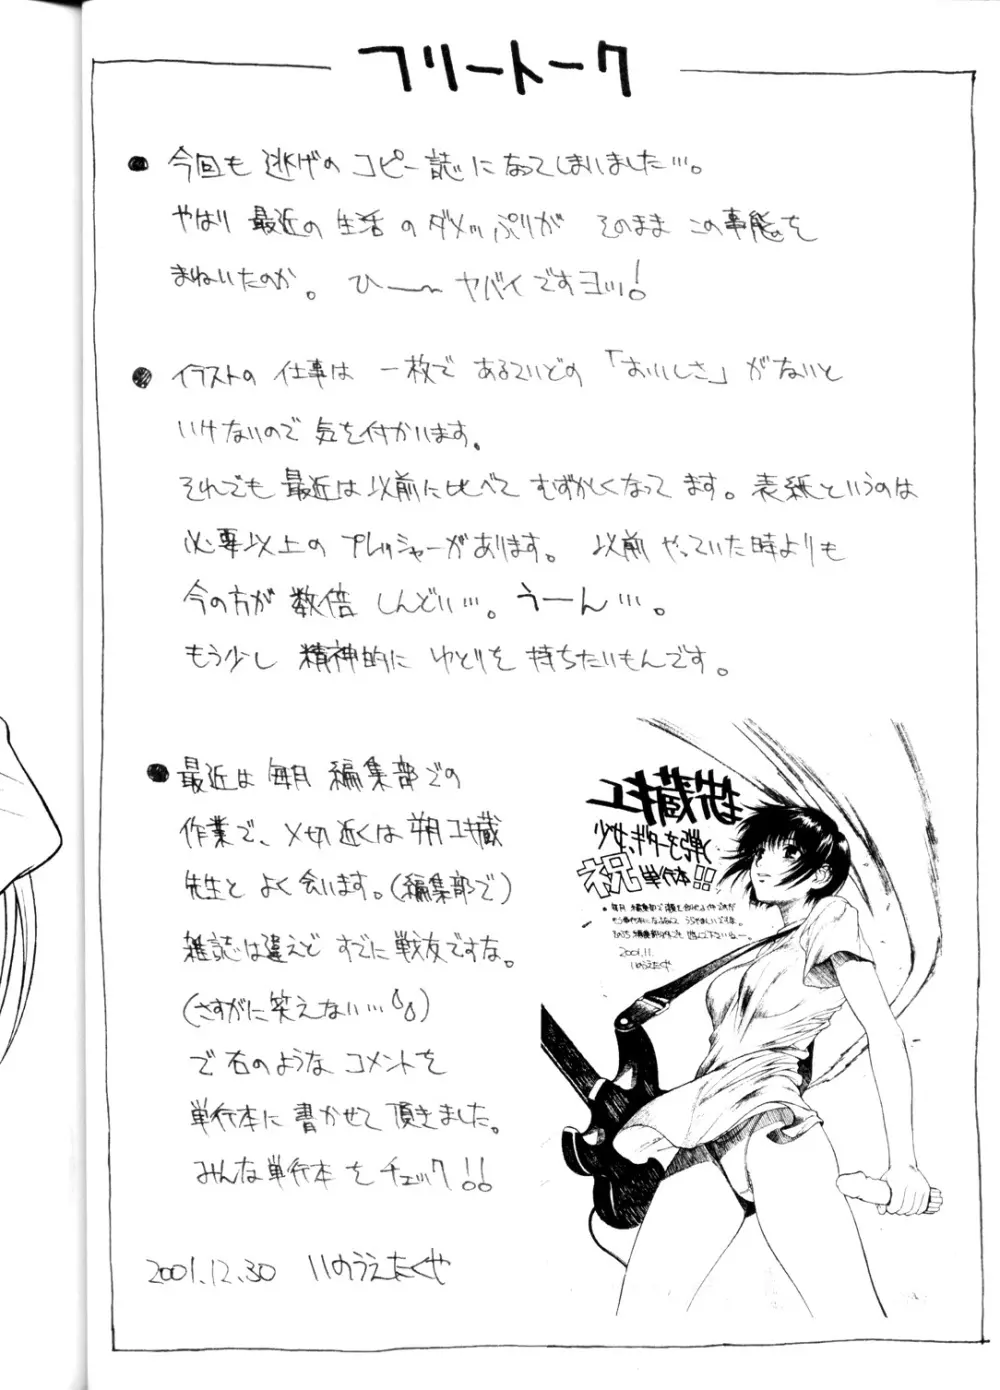 フリートーク
● 今回も 逃げの コピー誌に なってしまいました…。
やはり 最近の 生活 の ダメっぷりが そのまま この事態を
まねいたのか。 ひー〜 ヤバイですヨッ!
● イラストの 仕事は 一枚で あるていどの 「おいしさ」 が ないと
いけないので 気を付かいます。
それでも 最近は 以前に比べて むずかしくなって ます。表紙というのは
必要以上の プレッシャーがあります。 以前 やっていた時よりも
今の方が 数倍 しんどい…。うーん…。
もう少し 精神的に ゆとりを 持ちたいもんです。
● 最近は 毎月 編集部での
作業で、〆切 近くは 朔ユキ蔵
先生と よく会います。(編集部で)
雑誌は違えど すでに戦友ですな。
(さすがに笑えない…)
で 右のような コメントを
単行本に 書かせて 頂きました。
みんな単行本 を チェック!!
2001.12.30 いのうえたくや
ユキ蔵先生
少女、ギターを弾く
祝 単行本!!
2001.11.
いのうえたくや